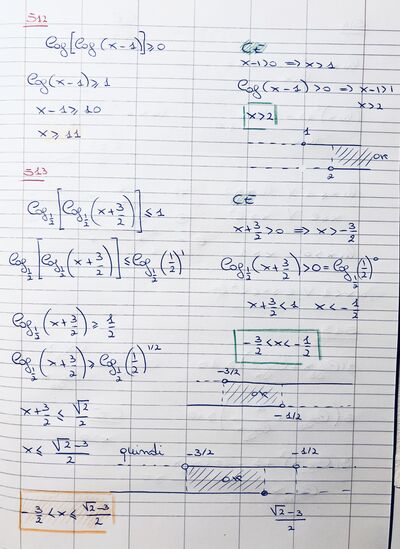 512
log[log(x-1)]≥0
log(x-1)≥1
x-1≥10
x≥11
CE
x-1>0 ⇒ x>1
log(x-1)>0 ⇒ x-1>1
x>2
x>2
1
OK
2
513
log_{1/2}[log_{1/2}(x+3/2)]≤1
log_{1/2}[log_{1/2}(x+3/2)]≤log_{1/2}(1/2)^1
log_{1/2}(x+3/2)≥1/2
log_{1/2}(x+3/2)≥log_{1/2}(1/2)^{1/2}
x+3/2≤√2/2
x≤(√2-3)/2
CE
x+3/2>0 ⇒ x>-3/2
log_{1/2}(x+3/2)>0=log_{1/2}(1/2)^0
x+3/2<1 x<-1/2
-3/2<x<-1/2
-3/2
OK
-1/2
quindi
-3/2 -1/2
OK
(√2-3)/2
-3/2<x≤(√2-3)/2